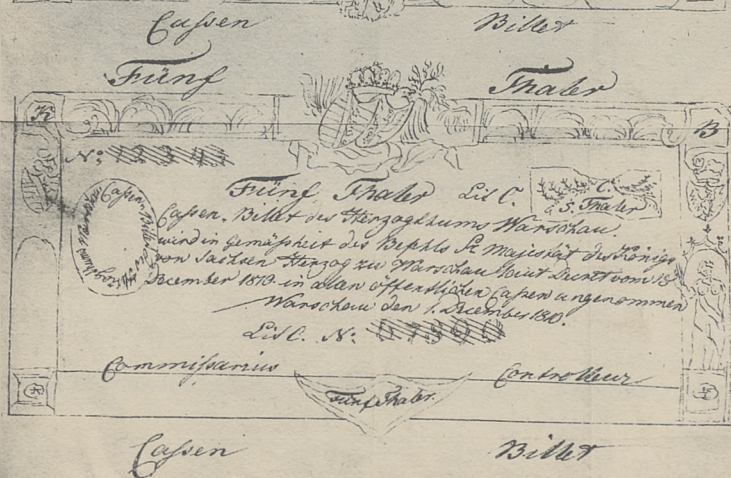 Cassen Billet
Fünf Thaler
K B
No:
Fünf Thaler Lit C. C.
5. Thaler
Cassen Billet des Herzogthums Warschau
Cassen, Billet des Herzogthums Warschau,
wird in gemäsheit des Befehls Sr Majestät des Königs
von Sachsen Herzog zu Warschau laut Decret vom 1
December 1810. in allen öffentlichen Cassen angenommen
Warschau den 1. December 1810.
Lit C. No:
Commissarius Controlleur
Fünf Thaler.
Cassen Billet